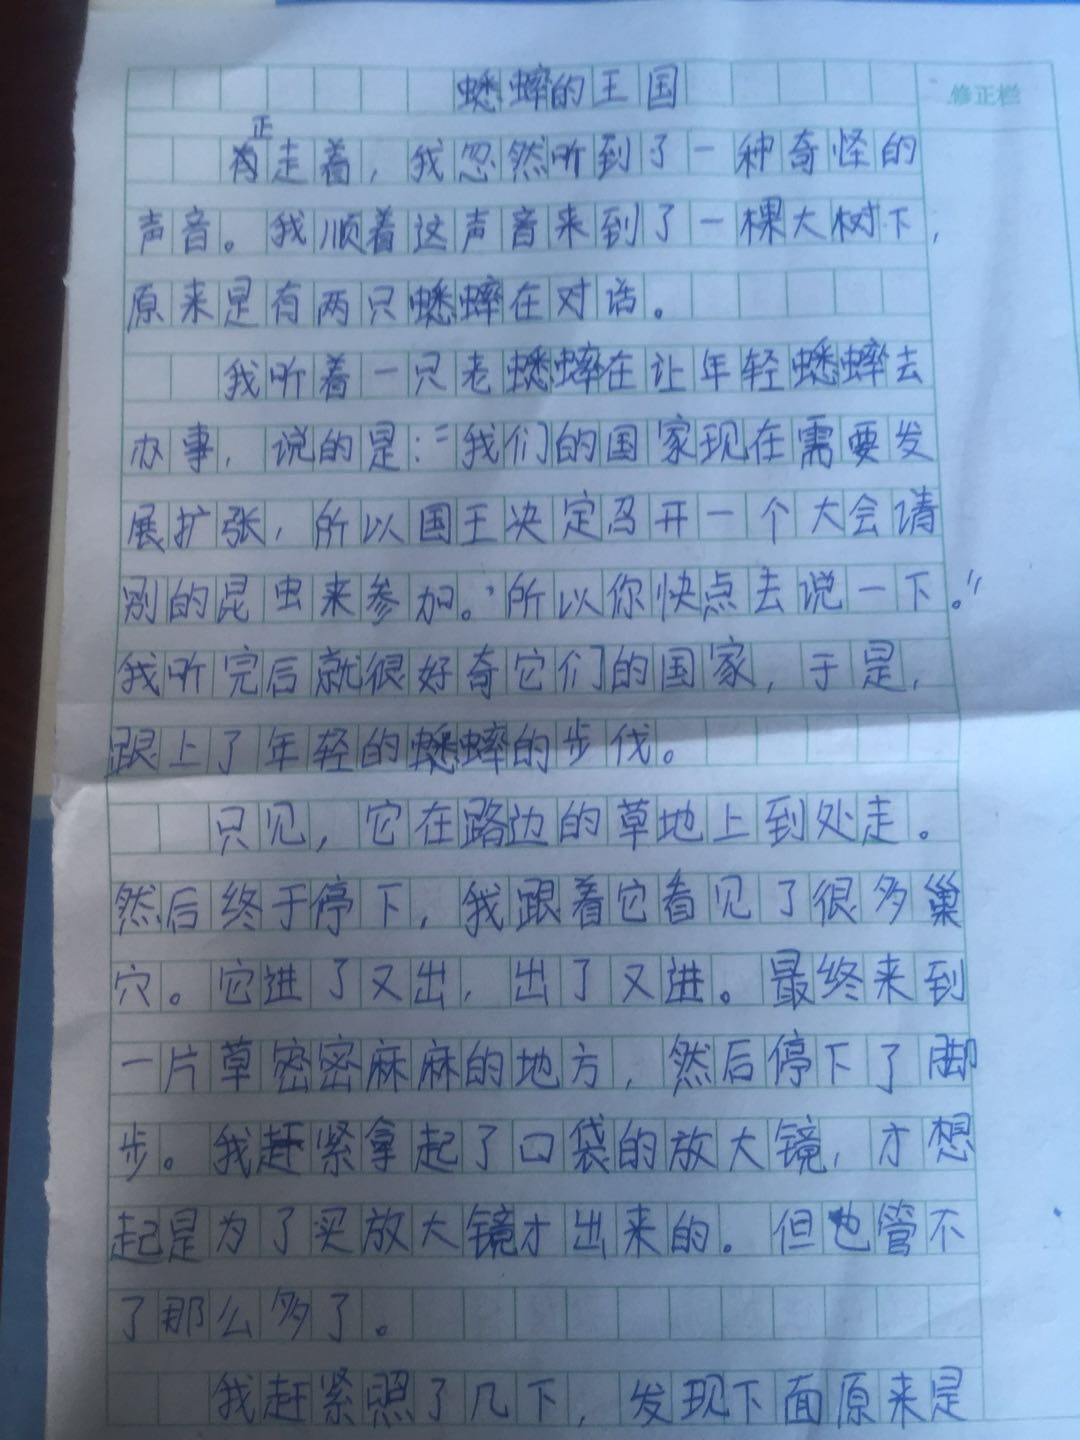 蟋蟀的王国
修正栏
正
走着，我忽然听到了一种奇怪的
声音。我顺着这声音来到了一棵大树下，
原来是有两只蟋蟀在对话。
我听着一只老蟋蟀在让年轻蟋蟀去
办事，说的是：“我们的国家现在需要发
展扩张，所以国王决定召开一个大会请
别的昆虫来参加。”所以你快点去说一下。”
我听完后就很好奇它们的国家，于是，
跟上了年轻的蟋蟀的步伐。
只见，它在路边的草地上到处走。
然后终于停下，我跟着它看见了很多巢
穴。它进了又出，出了又进。最终来到
一片草密密麻麻的地方，然后停下了脚
步。我赶紧拿起了口袋的放大镜，才想
起是为了买放大镜才出来的。但也管不
了那么多了。
我赶紧照了几下，发现下面原来是